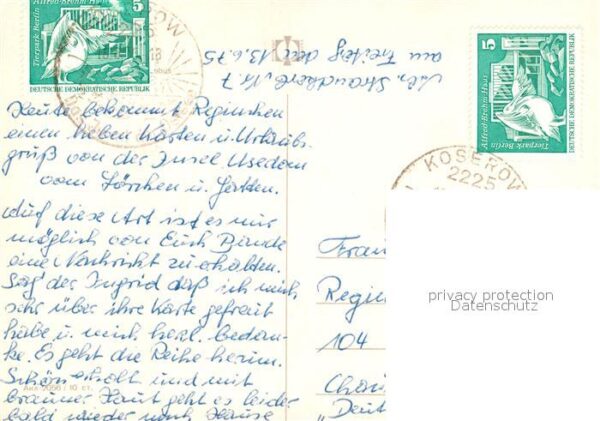 5
Alfred-Brehm-Haus
Tierpark Berlin
DEUTSCHE DEMOKRATISCHE REPUBLIK
KOSEROW
5
Alfred-Brehm-Haus
Tierpark Berlin
DEUTSCHE DEMOKRATISCHE REPUBLIK
KOSEROW
2225
Nr 7
am Freitag den 13.6.75
Heute bekommt Reginchen
einen lieben Karten u. Urlaubs-
gruß von der Insel Usedom
vom Lörchen u. Gatten.
Auf diese Art ist es mir
möglich von Euch Bande
eine Nachricht zu erhalten.
Sag' der Ingrid daß ich mich
sehr über ihre Karte gefreut
habe u. mich herzl. bedan-
ke. Es geht die Reihe herum.
Schön erholt und mit
brauner Haut geht es leider
bald wieder nach Hause
Frau
Regin
104
"Deut
AHK 2066 / 10 ct.
privacy protection
Datenschutz